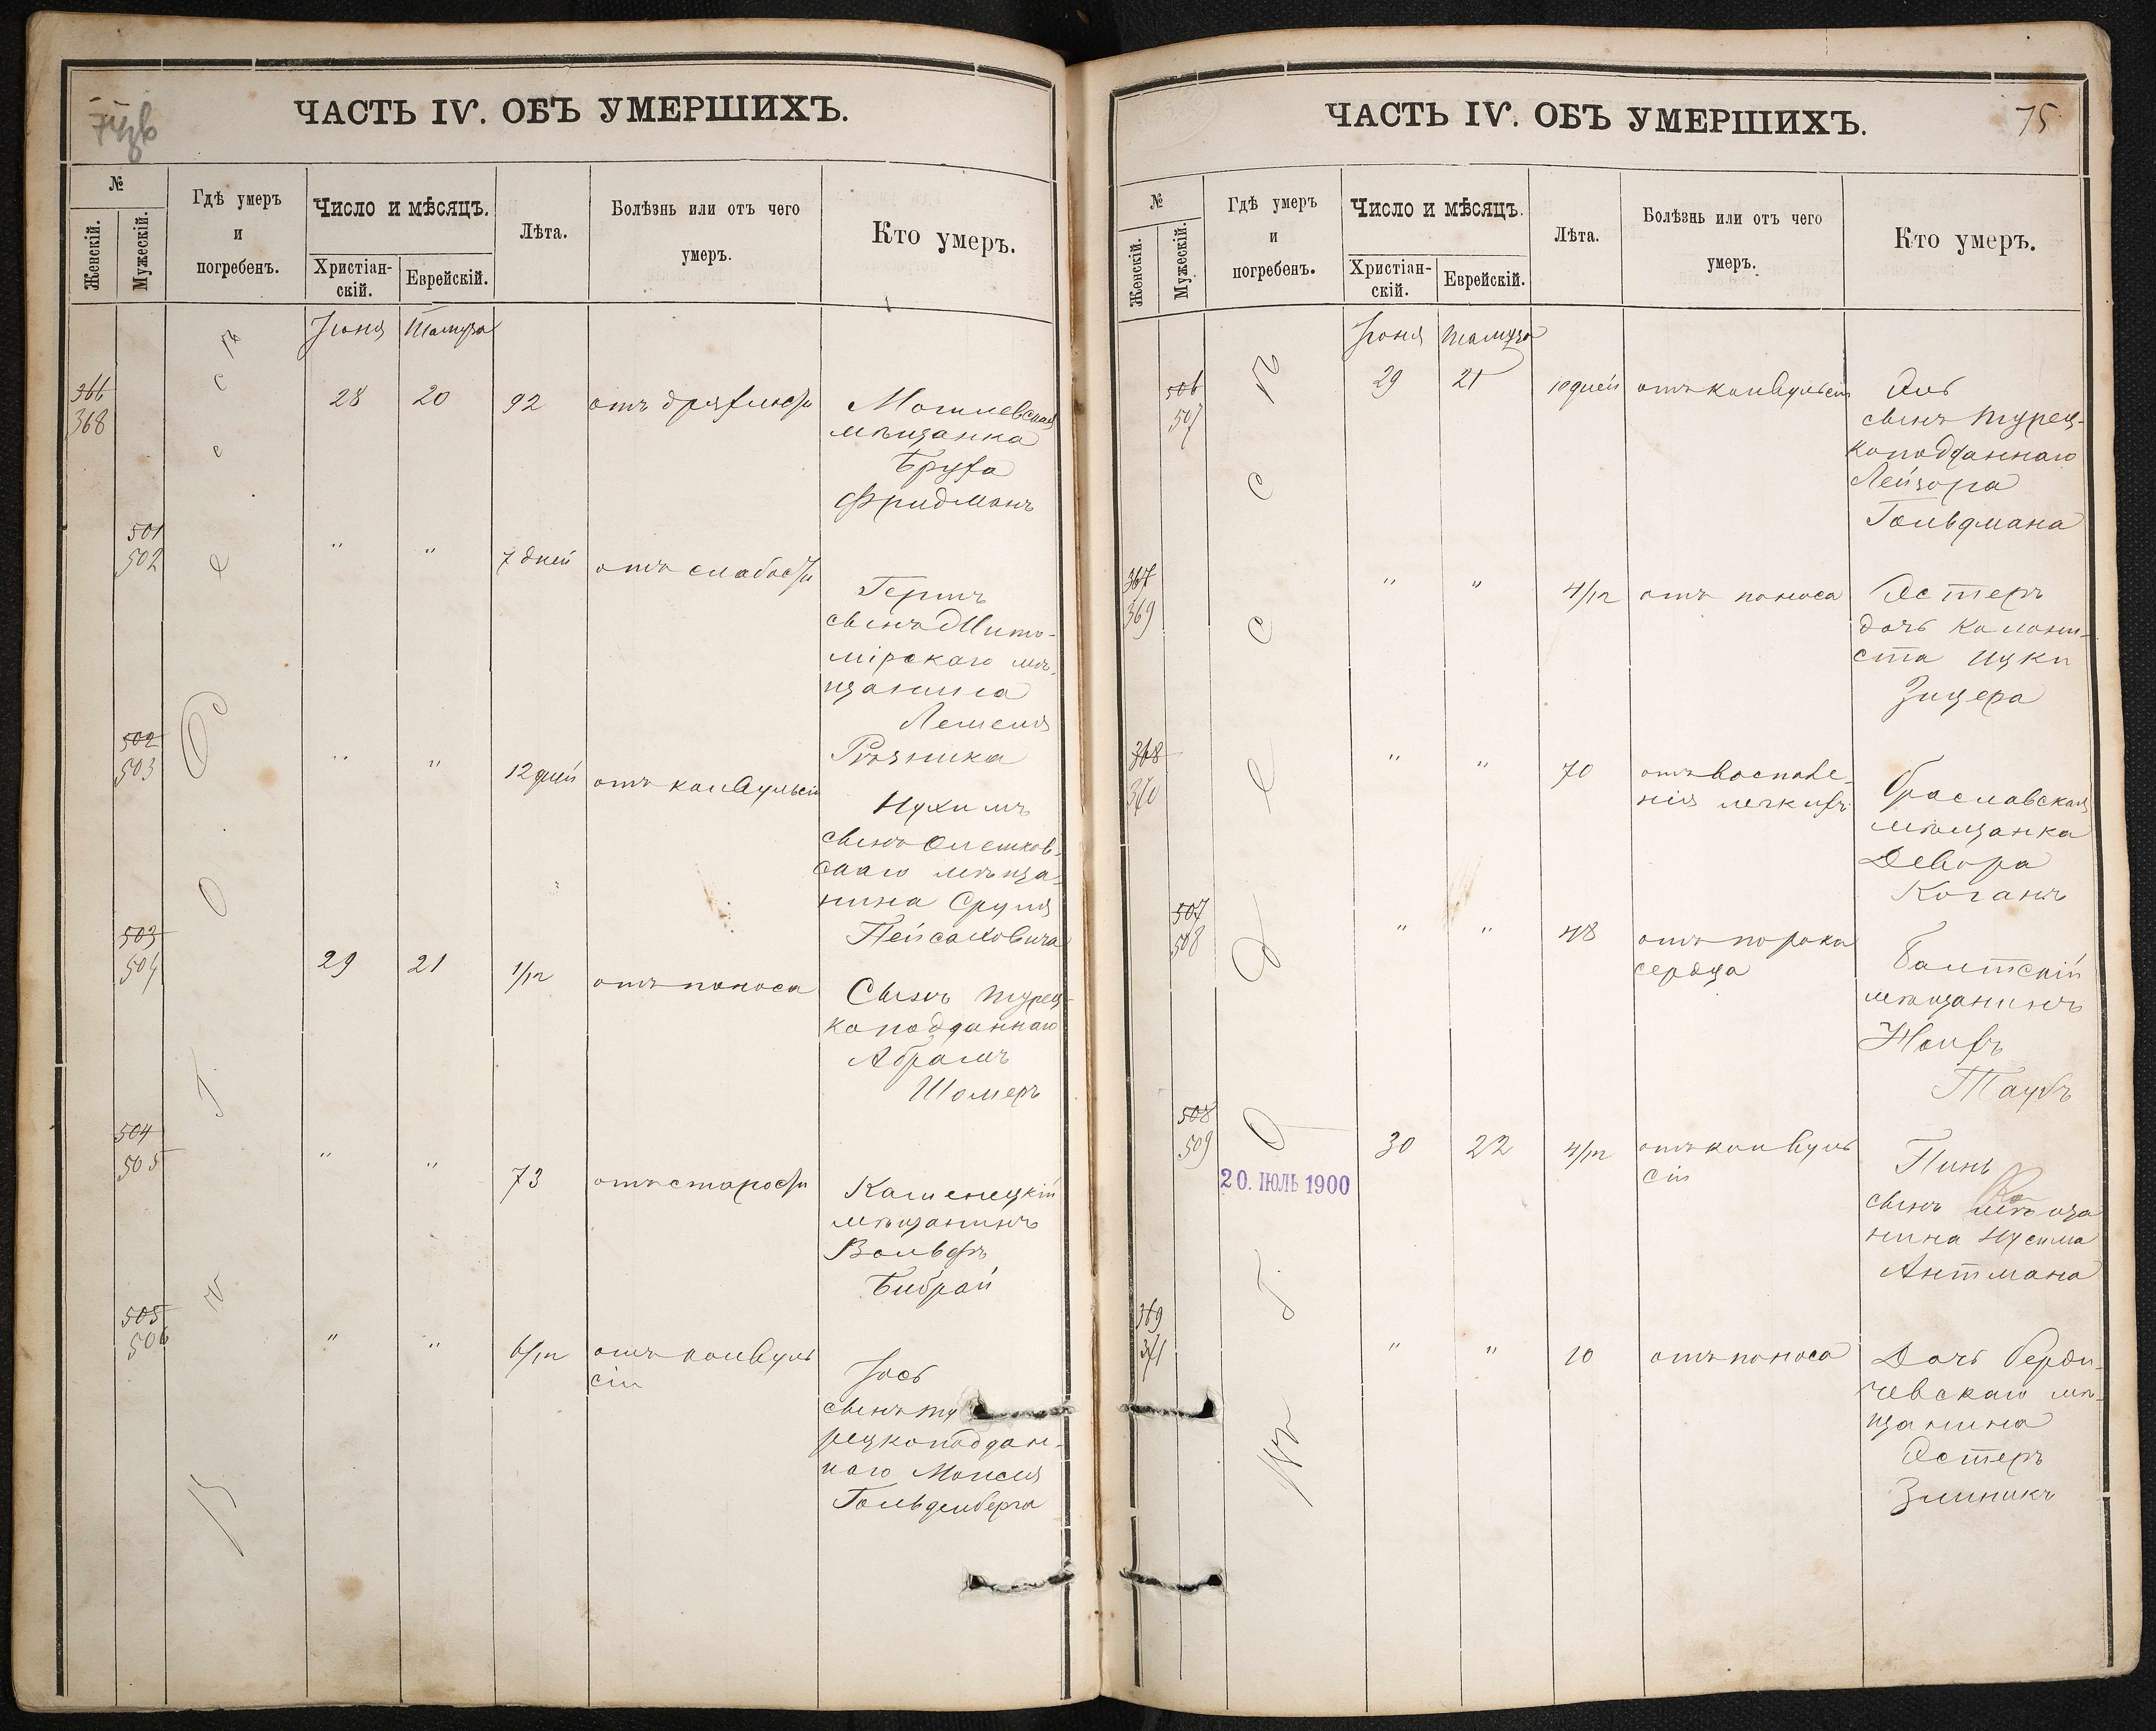 ЧАСТЬ IV. ОБЪ УМЕРШИХЪ.
№
Женскій.
Мужескій.
Гдѣ умеръ
и
погребенъ.
Число и мѣсяцъ.
Христіан-
скій.
Еврейскій.
Лѣта.
Болѣзнь или отъ чего
умеръ.
Кто умеръ.
Іюня Тамуза
366
368
28 20 92 отъ дряхлости
Могилевская
мѣщанка
Бруха
Фридманъ
501
502
" " 7 дней отъ слабости
Гершъ
сынъ Жито-
мірскаго мѣ-
щанина
Резника
502
503
" " 12 дней отъ конвульсіи
Нухимъ
сынъ
скаго мѣща-
нина Сруля
Пейсаховича
503
504
29 21 1/12 отъ поноса
Сынъ турец-
коподданнаго
Абрамъ
Шомеръ
504
505
" " 73 отъ старости
Каменецкій
мѣщанинъ
Вольфъ
Бибрай
505
506
" " 6/12 отъ конвуль
сіи
Іосъ
сынъ ту
рецкоподдан-
наго Моисея
Гольденберга
Одесса
ЧАСТЬ IV. ОБЪ УМЕРШИХЪ.
75
№
Женскій.
Мужескій.
Гдѣ умеръ
и
погребенъ.
Число и мѣсяцъ.
Христіан-
скій.
Еврейскій.
Лѣта.
Болѣзнь или отъ чего
умеръ.
Кто умеръ.
Іюня Тамуза
506
507
29 21 10 дней отъ конвульсіи
сынъ турец-
коподданнаго
Лейзора
Гольдмана
367
369
" " 4/12 отъ поноса
Эстеръ
дочь колони-
ста Ицки
Зицера
368
370
" " 70 отъ воспале-
нія легкихъ
Брославская
мѣщанка
Девора
Коганъ
507
508
" " 48 отъ порока
сердца
Балтскій
мѣщанинъ
Таубъ
508
509
30 22 4/12 отъ конвуль
сіи
Пинь
сынъ мѣща
нина Нусима
Антмана
20. ІЮЛЬ 1900
369
371
" " 10 отъ поноса
Дочь Берди-
чевскаго мѣ-
щанина
Эстеръ
Злиникъ